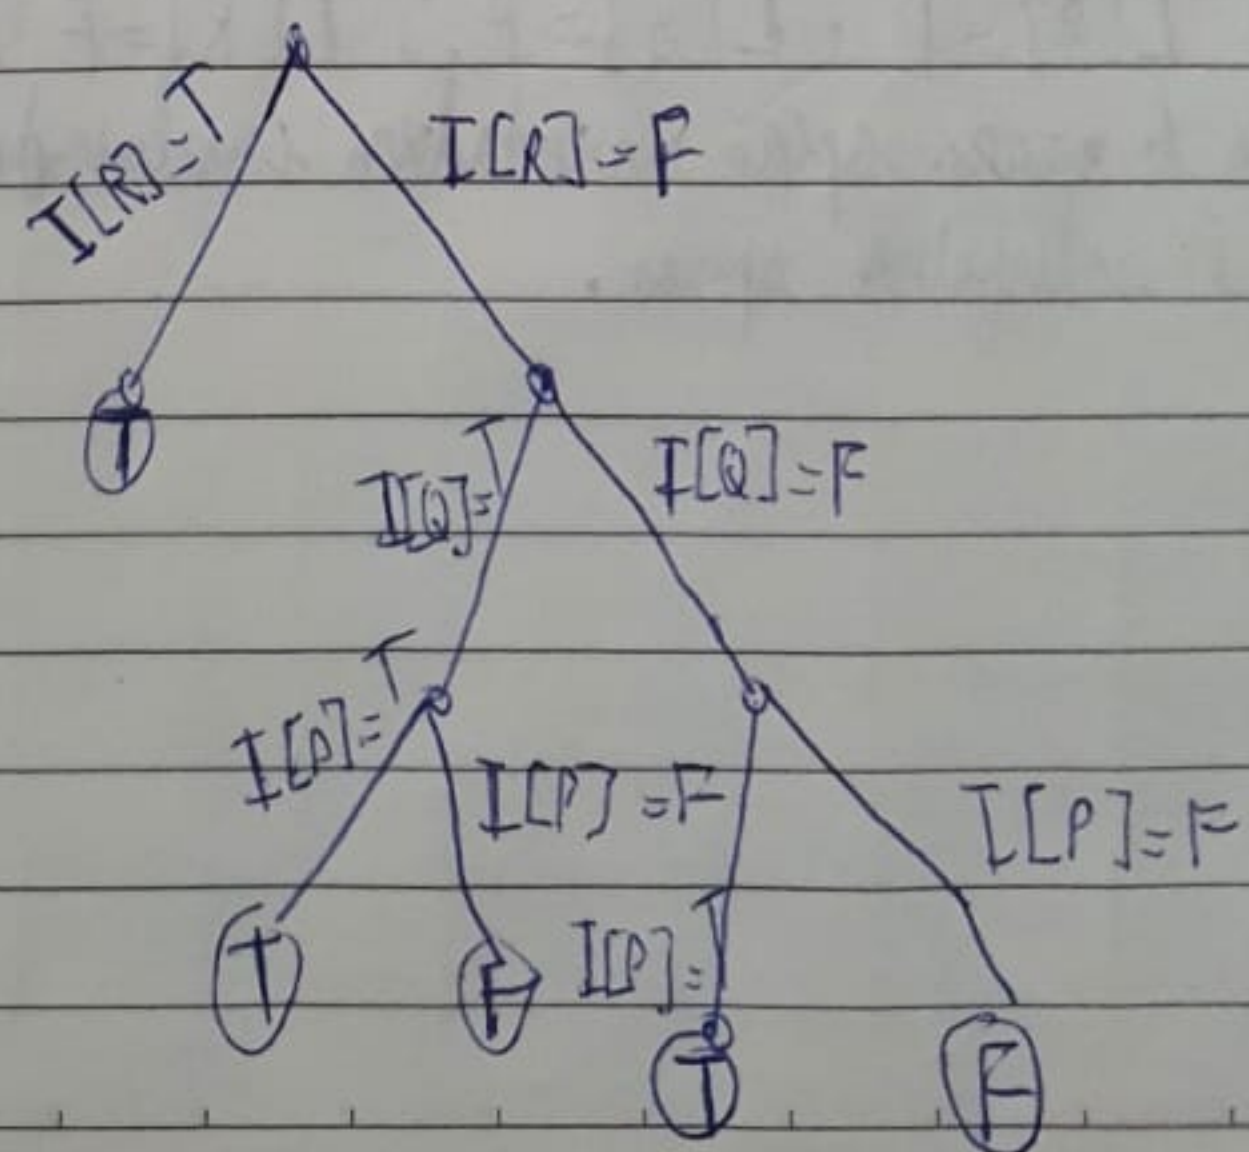 I[R]=T I[R]=F
T
I[Q]=T I[Q]=F
I[P]=T I[P]=F I[P]=T I[P]=F
T F T F